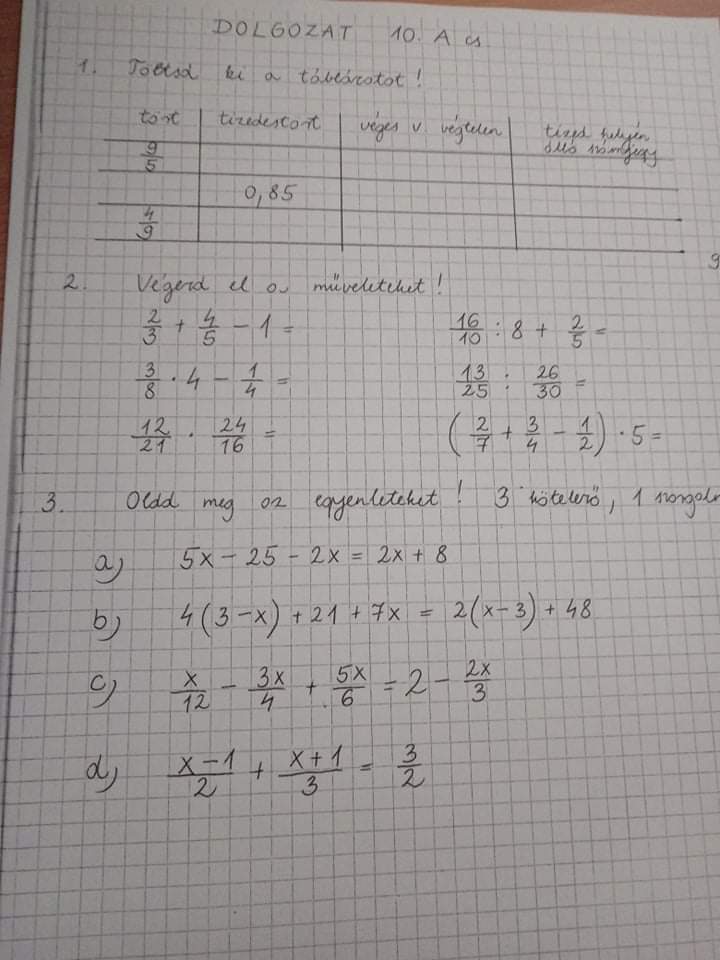 DOLGOZAT 10. A cs
1. Töltsd ki a táblázatot!
tört tizedestört véges v. végtelen tized helyén
álló számjegy
9/5
0,85
4/9
9
2. Végezd el a műveleteket!
2/3 + 4/5 − 1 = 16/10 : 8 + 2/5 =
3/8 · 4 − 1/4 = 13/25 : 26/30 =
12/21 · 24/16 = (2/7 + 3/4 − 1/2) · 5 =
3. Oldd meg az egyenleteket! 3 kötelező, 1 szorgalm
a) 5x − 25 − 2x = 2x + 8
b) 4(3−x) + 21 + 7x = 2(x−3) + 48
c) x/12 − 3x/4 + 5x/6 = 2 − 2x/3
d) x−1/2 + x+1/3 = 3/2